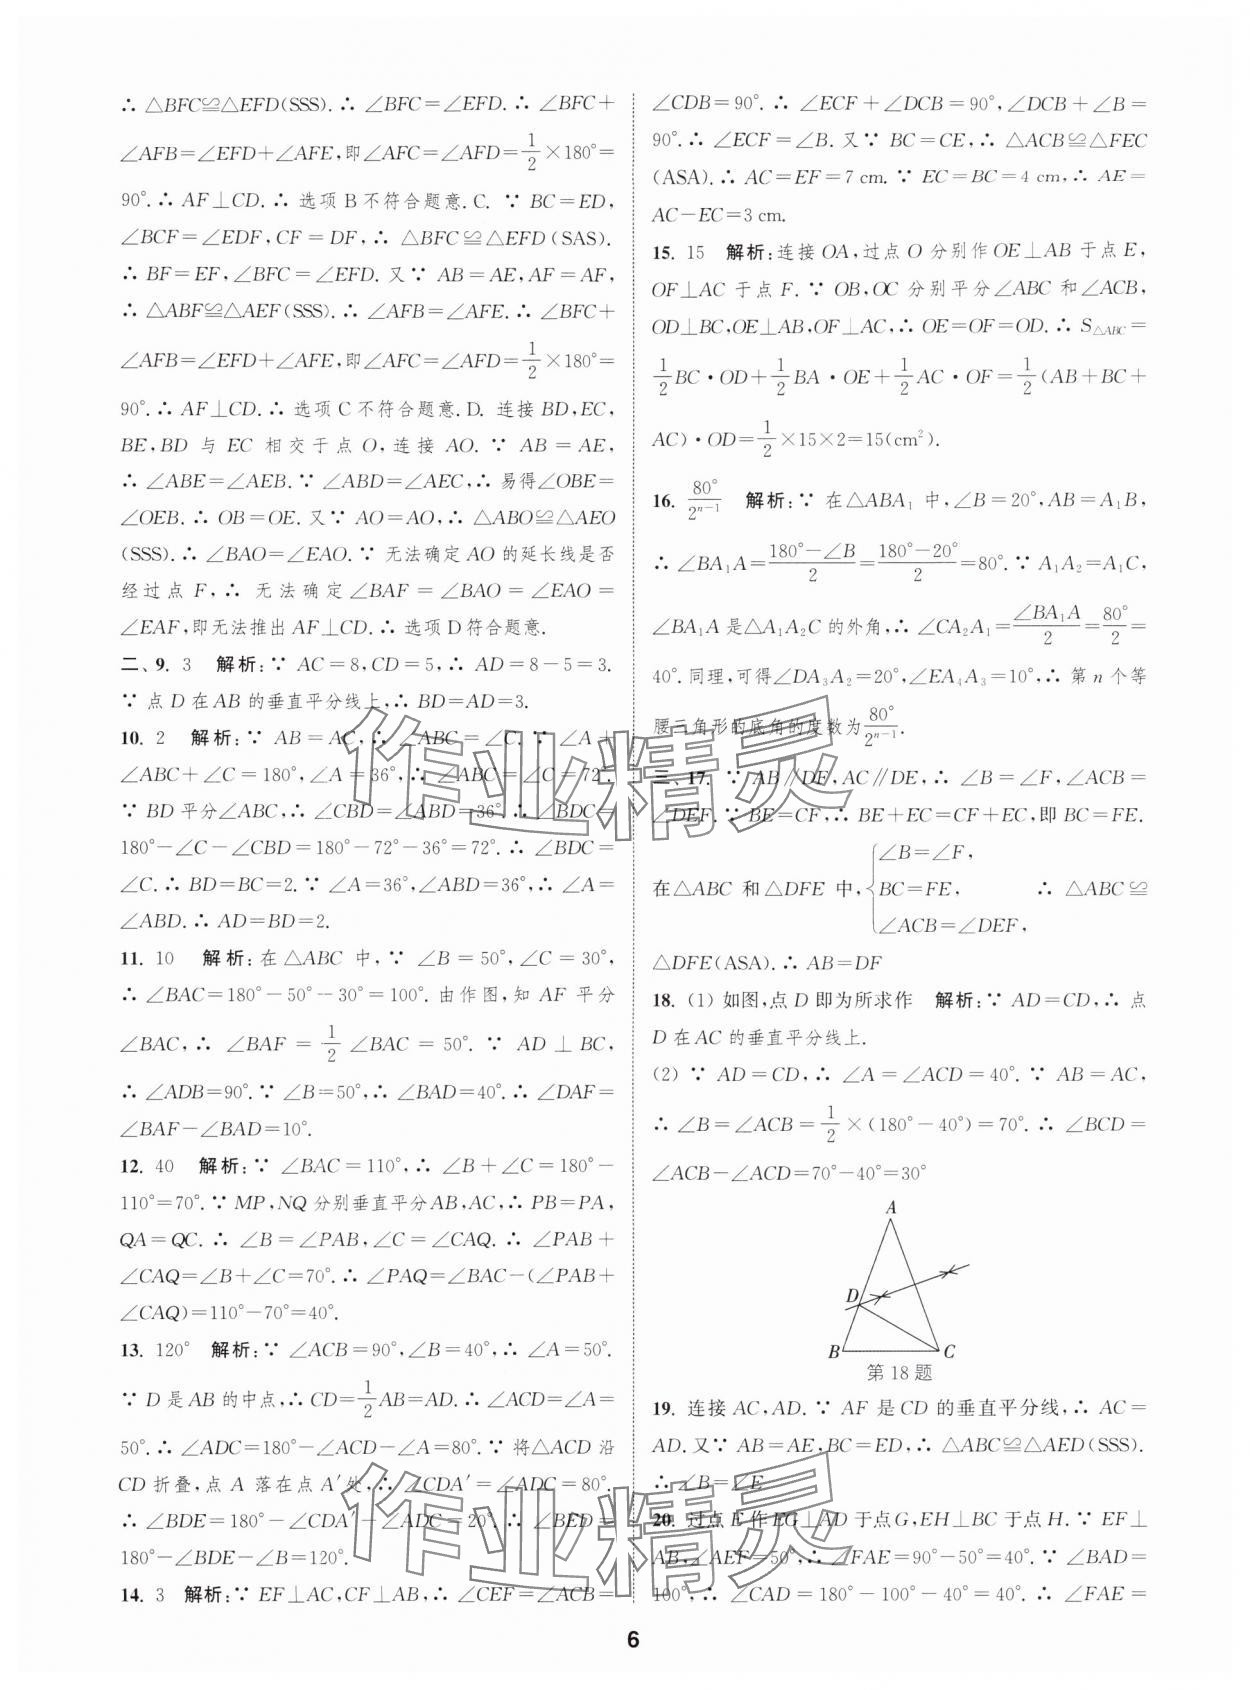 ∴ △BFC≌△EFD(SSS).∴ ∠BFC=∠EFD.∴ ∠BFC+
∠AFB=∠EFD+∠AFE,即∠AFC=∠AFD=1/2×180°=
90°.∴ AF⊥CD.∴ 选项B不符合题意.C. ∵ BC=ED,
∠BCF=∠EDF,CF=DF,∴ △BFC≌△EFD(SAS).
∴ BF=EF,∠BFC=∠EFD.又∵ AB=AE,AF=AF,
∴ △ABF≌△AEF(SSS).∴ ∠AFB=∠AFE.∴ ∠BFC+
∠AFB=∠EFD+∠AFE,即∠AFC=∠AFD=1/2×180°=
90°.∴ AF⊥CD.∴ 选项C不符合题意.D. 连接BD,EC,
BE,BD 与 EC 相交于点O,连接 AO.∵ AB=AE,
∴ ∠ABE=∠AEB.∵ ∠ABD=∠AEC,∴ 易得∠OBE=
∠OEB.∴ OB=OE.又∵ AO=AO,∴ △ABO≌△AEO
(SSS).∴ ∠BAO=∠EAO.∵ 无法确定AO的延长线是否
经过点 F,∴ 无法确定∠BAF=∠BAO=∠EAO=
∠EAF,即无法推出AF⊥CD.∴ 选项D符合题意.
二、9. 3 解析:∵ AC=8,CD=5,∴ AD=8-5=3.
∵ 点D在AB的垂直平分线上,∴ BD=AD=3.
10. 2 解析:∵ AB=AC,∴ ∠ABC=∠C.∵ ∠A+
∠ABC+∠C=180°,∠A=36°,∴ ∠ABC=∠C=72°.
∵ BD平分∠ABC,∴ ∠CBD=∠ABD=36°.∴ ∠BDC=
180°-∠C-∠CBD=180°-72°-36°=72°.∴ ∠BDC=
∠C.∴ BD=BC=2.∵ ∠A=36°,∠ABD=36°,∴ ∠A=
∠ABD.∴ AD=BD=2.
11. 10 解析:在△ABC 中,∵ ∠B=50°,∠C=30°,
∴ ∠BAC=180°-50°-30°=100°.由作图,知 AF 平分
∠BAC,∴ ∠BAF=1/2∠BAC=50°.∵ AD⊥BC,
∴ ∠ADB=90°.∵ ∠B=50°,∴ ∠BAD=40°.∴ ∠DAF=
∠BAF-∠BAD=10°.
12. 40 解析:∵ ∠BAC=110°,∴ ∠B+∠C=180°-
110°=70°.∵ MP,NQ分别垂直平分AB,AC,∴ PB=PA,
QA=QC.∴ ∠B=∠PAB,∠C=∠CAQ.∴ ∠PAB+
∠CAQ=∠B+∠C=70°.∴ ∠PAQ=∠BAC-(∠PAB+
∠CAQ)=110°-70°=40°.
13. 120° 解析:∵ ∠ACB=90°,∠B=40°,∴ ∠A=50°.
∵ D是AB的中点,∴ CD=1/2AB=AD.∴ ∠ACD=∠A=
50°.∴ ∠ADC=180°-∠ACD-∠A=80°.∵ 将△ACD沿
CD折叠,点 A 落在点A′处,∴ ∠CDA′=∠ADC=80°.
∴ ∠BDE=180°-∠CDA′-∠ADC=20°.∴ ∠BED=
180°-∠BDE-∠B=120°.
14. 3 解析:∵ EF⊥AC,CF⊥AB,∴ ∠CEF=∠ACB=
∠CDB=90°.∴ ∠ECF+∠DCB=90°,∠DCB+∠B=
90°.∴ ∠ECF=∠B.又∵ BC=CE,∴ △ACB≌△FEC
(ASA).∴ AC=EF=7 cm.∵ EC=BC=4 cm,∴ AE=
AC-EC=3 cm.
15. 15 解析:连接OA,过点O分别作OE⊥AB于点E,
OF⊥AC于点F.∵ OB,OC分别平分∠ABC和∠ACB,
OD⊥BC,OE⊥AB,OF⊥AC,∴ OE=OF=OD.∴ S△ABC=
1/2BC·OD+1/2BA·OE+1/2AC·OF=1/2(AB+BC+
AC)·OD=1/2×15×2=15(cm²).
16. 80°/2ⁿ⁻¹ 解析:∵ 在△ABA₁中,∠B=20°,AB=A₁B,
∴ ∠BA₁A=(180°-∠B)/2=(180°-20°)/2=80°.∵ A₁A₂=A₁C,
∠BA₁A是△A₁A₂C的外角,∴ ∠CA₂A₁=∠BA₁A/2=80°/2=
40°.同理,可得∠DA₃A₂=20°,∠EA₄A₃=10°,∴ 第n个等
腰三角形的底角的度数为80°/2ⁿ⁻¹.
三、17. ∵ AB∥DF,AC∥DE,∴ ∠B=∠F,∠ACB=
∠DEF.∵ BE=CF,∴ BE+EC=CF+EC,即BC=FE.
∠B=∠F,
在△ABC 和△DFE 中,{BC=FE, ∴ △ABC≌
∠ACB=∠DEF,
△DFE(ASA).∴ AB=DF
18. (1) 如图,点D即为所求作 解析:∵ AD=CD,∴ 点
D在AC的垂直平分线上.
(2) ∵ AD=CD,∴ ∠A=∠ACD=40°.∵ AB=AC,
∴ ∠B=∠ACB=1/2×(180°-40°)=70°.∴ ∠BCD=
∠ACB-∠ACD=70°-40°=30°
A
D
B C
第18题
19. 连接AC,AD.∵ AF是CD的垂直平分线,∴ AC=
AD.又∵ AB=AE,BC=ED,∴ △ABC≌△AED(SSS).
∴ ∠B=∠E
20. 过点E作EG⊥AD于点G,EH⊥BC于点H.∵ EF⊥
AB,∠AEF=50°,∴ ∠FAE=90°-50°=40°.∵ ∠BAD=
100°,∴ ∠CAD=180°-100°-40°=40°.∴ ∠FAE=
作业精灵
作业精灵
6